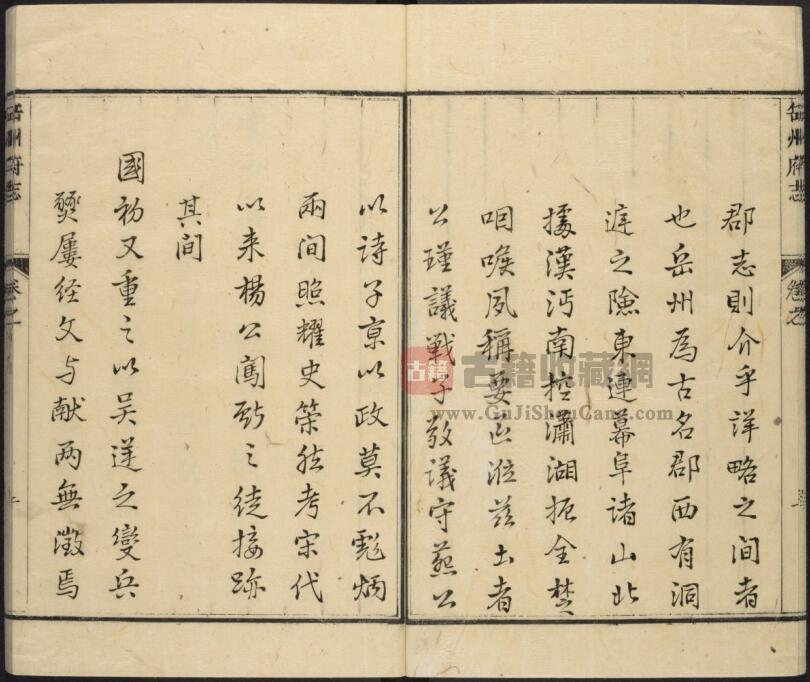 郡志則介乎詳略之間者
也岳州為古名郡西有洞
庭之險東連幕阜諸山北
據漢沔南控瀟湖扼全楚
咽喉夙稱要區涖茲土者
公瑾議戰子敬議守燕公
以诗子京以政莫不彪炳
兩间照耀史策然考宋代
以来楊公闖 之徒接跡
其间
國初又重之以吴逆之變兵
燹屢经文与献两無徵焉
岳州府志
岳州府志
古籍 古籍收藏網
www.GuJiShouCang.com